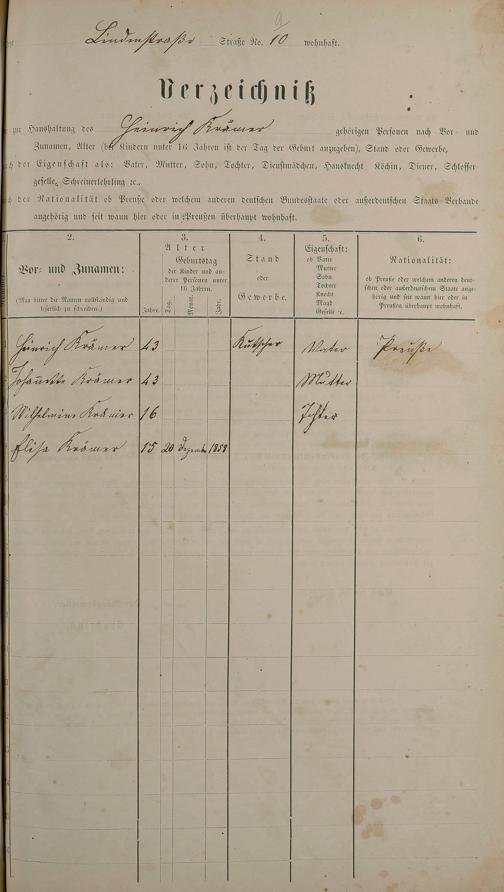 9
Lindenstraße Straße No. 10 wohnhaft.
Verzeichniß
zur Haushaltung des Heinrich Krämer gehörigen Personen nach Vor- und
Zunamen, Alter (bei Kindern unter 16 Jahren ist der Tag der Geburt anzugeben), Stand oder Gewerbe,
der Eigenschaft als: Vater, Mutter, Sohn, Tochter, Dienstmädchen, Hausknecht, Köchin, Diener, Schlosser-
geselle, Schreinerlehrling ꝛc.,
der Nationalität ob Preuße oder welchem anderen deutschen Bundesstaate oder außerdeutschen Staats-Verbande
angehörig und seit wann hier oder in Preußen überhaupt wohnhaft.
2. 3. 4. 5. 6.
Vor- und Zunamen:
(Man bittet die Namen vollständig und
leserlich zu schreiben.)
Alter
Geburtstag
der Kinder und an-
derer Personen unter
16 Jahren.
Jahre. Tag. Monat. Jahr.
Stand
oder
Gewerbe.
Eigenschaft:
ob Vater
Mutter
Sohn
Tochter
Knecht
Magd
Geselle ꝛc.
Nationalität:
ob Preuße oder welchem anderen deut-
schen oder außerdeutschen Staate ange-
hörig und seit wann hier oder in
Preußen überhaupt wohnhaft.
Heinrich Krämer 43 Kutscher Vater Preuße
Johannette Krämer 43 Mutter
Wilhelmine Krämer 16 Tochter
Elisa Krämer 15 20 Dezember 1858